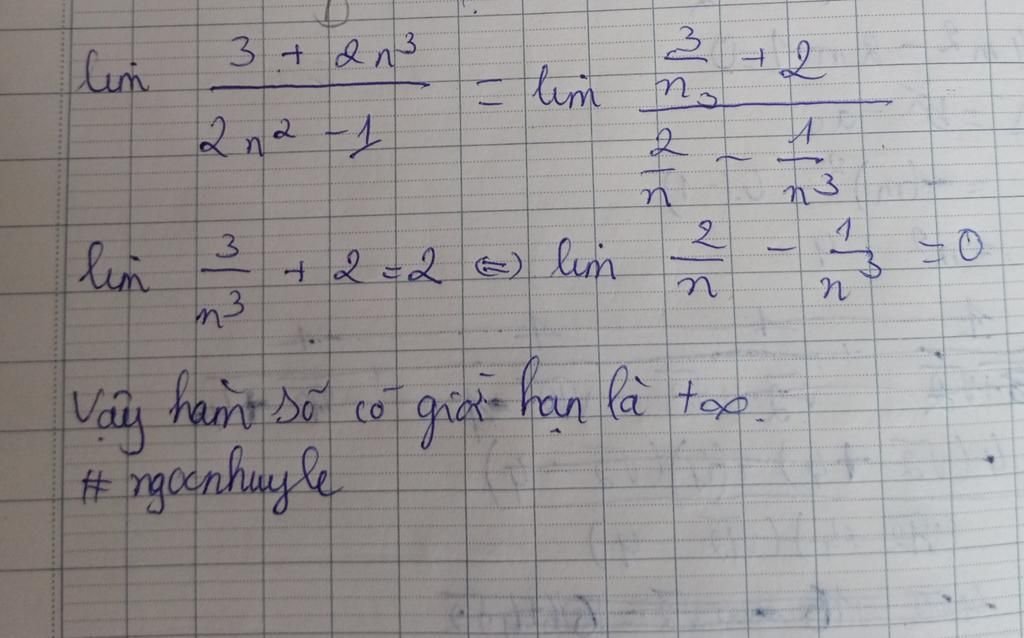 lim (3 + 2n³)/(2n² - 1) = lim (3/n³ + 2)/(2/n - 1/n³)
lim 3/n³ + 2 = 2 ⇔ lim 2/n - 1/n³ = 0
Vậy hàm số có giới hạn là +∞.
# ngocnhuyle